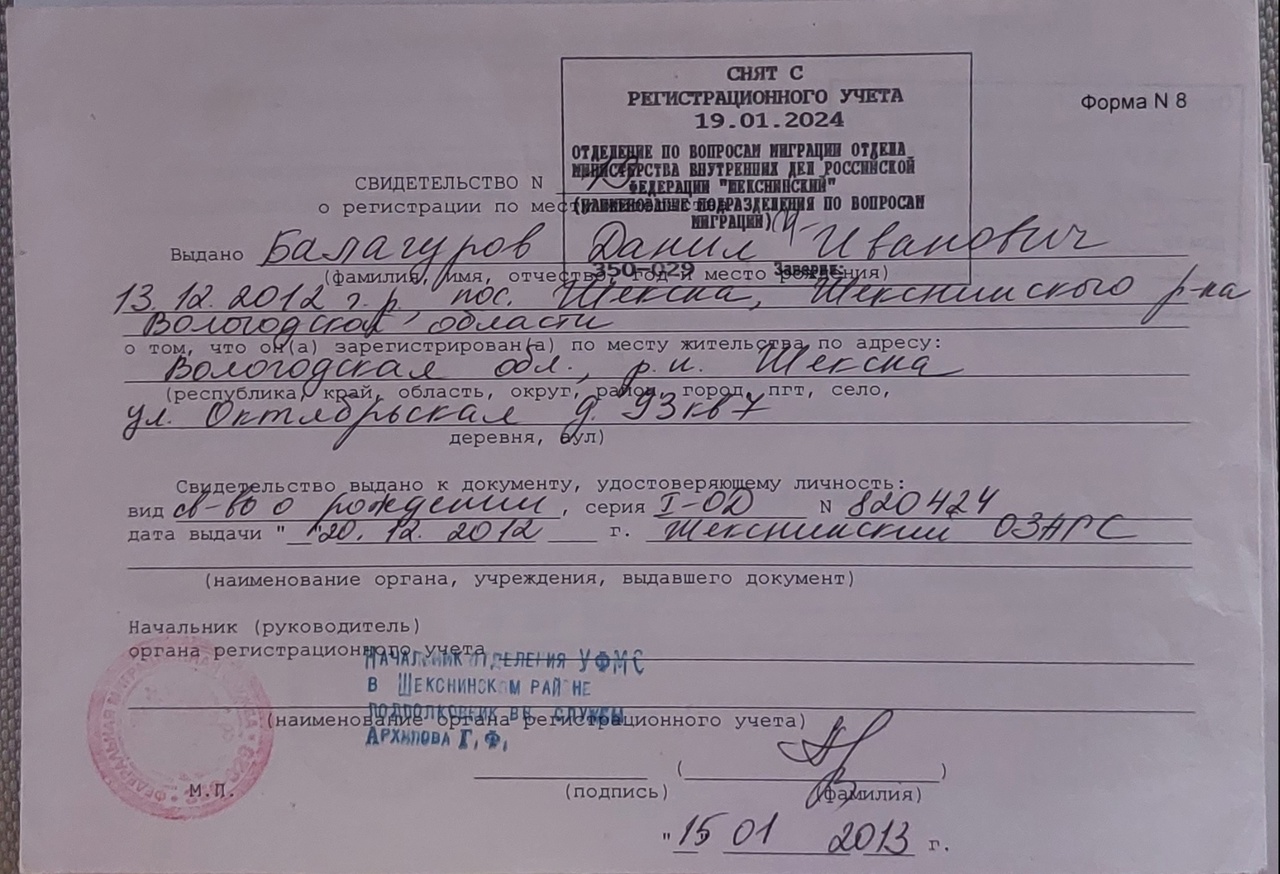 СНЯТ С
РЕГИСТРАЦИОННОГО УЧЕТА
19.01.2024
Форма N 8
ОТДЕЛЕНИЕ ПО ВОПРОСАМ МИГРАЦИИ ОТДЕЛА
МИНИСТЕРСТВА ВНУТРЕННИХ ДЕЛ РОССИЙСКОЙ
ФЕДЕРАЦИИ "ШЕКСНИНСКИЙ"
(НАИМЕНОВАНИЕ ПОДРАЗДЕЛЕНИЯ ПО ВОПРОСАМ
МИГРАЦИИ)
350-029 Заверил:
СВИДЕТЕЛЬСТВО N
о регистрации по месту
Выдано Балагуров Данил Иванович
(фамилия, имя, отчество, год и место рождения)
13.12.2012 г.р. пос. Шексна, Шекснинского р-на
Вологодская области
о том, что он(а) зарегистрирован(а) по месту жительства по адресу:
Вологодская обл., р.п. Шексна
(республика, край, область, округ, район, город, пгт, село,
ул. Октябрьская д. 93 кв 7
деревня, аул)
Свидетельство выдано к документу, удостоверяющему личность:
вид св-во о рождении, серия I-ОД N 820424
дата выдачи " "20. 12. 2012 г. Шекснинский ОЗАГС
(наименование органа, учреждения, выдавшего документ)
Начальник (руководитель)
органа регистрационного учета
НАЧАЛЬНИК ОТДЕЛЕНИЯ УФМС
В ШЕКСНИНСКОМ РАЙОНЕ
ПОДПОЛКОВНИК ВН. СЛУЖБЫ
(наименование органа регистрационного учета)
АРХИПОВА Г.Ф.
М.П.
(подпись) (фамилия)
"15" 01 2013 г.